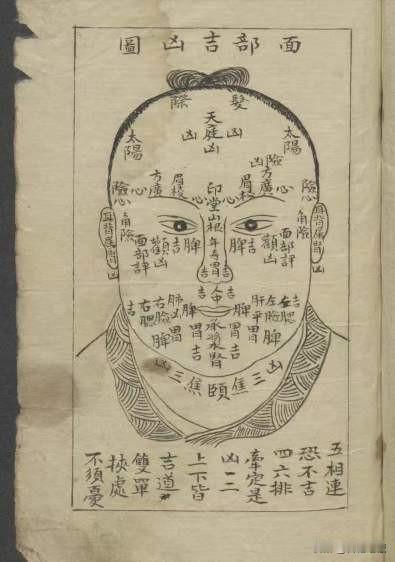 面部吉凶圖
髮際
天庭
凶
凶
凶
太陽
太陽
險凶
方廣
方廣
眉棱
眉棱
心
心
心
心
險
險
印堂
山根
年壽
胃
角險
角險
面部評
面部評
顴凶
顴凶
脾
吉
脾
吉
吉
吉
吉
人中
吉
承漿
腎
脾
脾
肺凶胃
肝平胃
右臉脾
左臉脾
右腮
左腮
吉
吉
胃吉
胃吉
凶
凶
三焦
頤
三焦
五相連
恐不吉
四六排
牽定是
凶一二
上下皆
吉道
雙單
挾處
不須憂